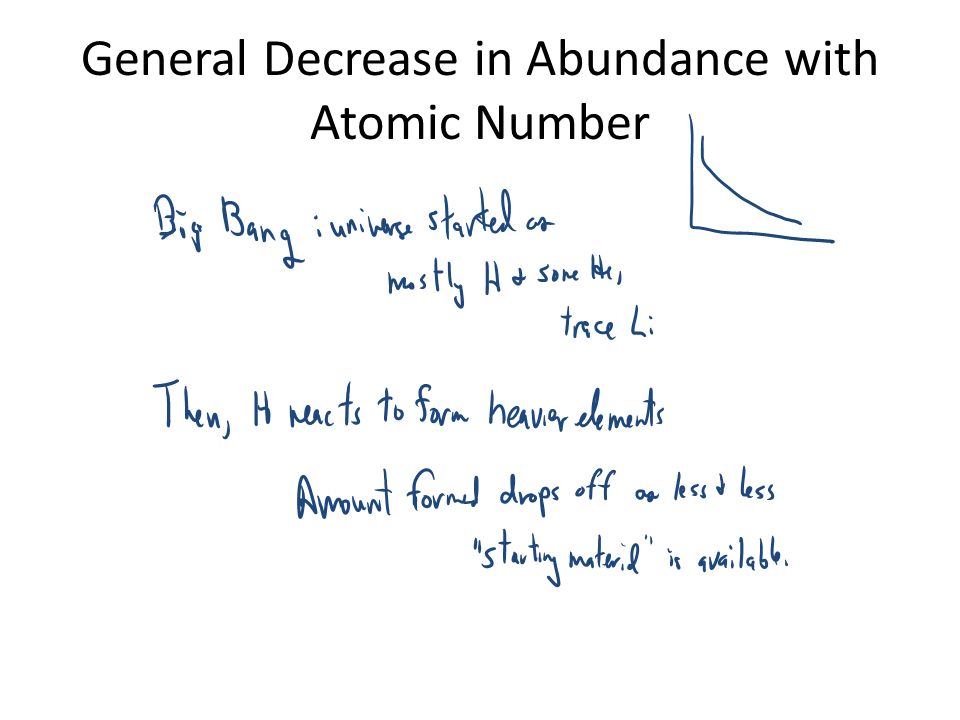 General Decrease in Abundance with
Atomic Number
Big Bang : universe started as
mostly H + some He,
trace Li
Then, H reacts to form heavier elements
Amount formed drops off as less + less
"starting material" is available.